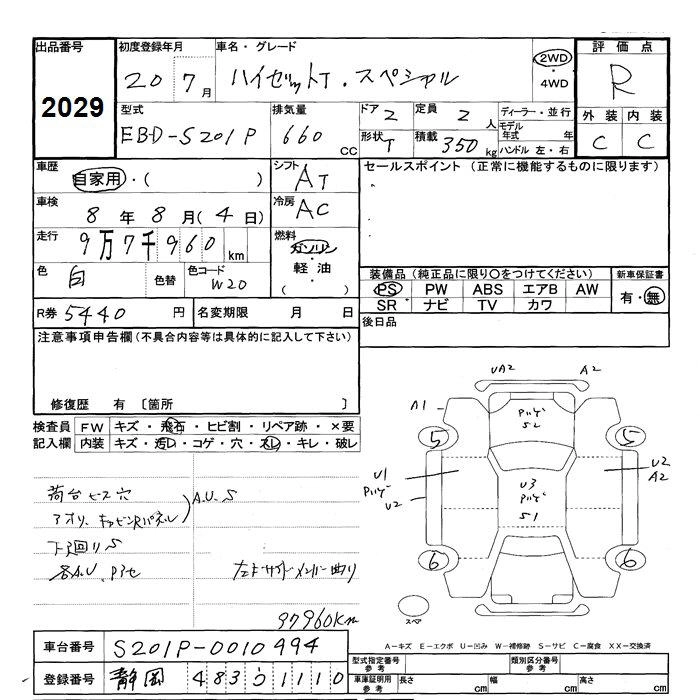 出品番号 初度登録年月 車名・グレード 評価点
2029 20 7月 ハイゼットT.スペシャル 2WD・4WD R
型式 排気量 ドア 2 定員 2人 ディーラー・並行 外装 内装
EBD-S201P 660cc 形状 T 積載 350kg モデル年式 年 C C
ハンドル 左・右
車歴 シフト セールスポイント (正常に機能するものに限ります)
自家用・( ) AT
車検 冷房
8年8月(4日) AC
走行 燃料
9万7千960km ガソリン・軽油・( )
色 白 色替 色コード W20
装備品(純正品に限り○をつけてください) 新車保証書
PS PW ABS エアB AW 有・無
SR ナビ TV カワ
R券 5440円 名変期限 月 日 後日品
注意事項申告欄(不具合内容等は具体的に記入して下さい)
修復歴 有 〔箇所 〕
検査員 FW キズ・飛石・ヒビ割・リペア跡・×要
記入欄 内装 キズ・汚れ・コゲ・穴・スレ・キレ・破レ
荷台 ビス穴
アオリ、キャビンRパネル A.U.S
下回りS
各A.U
97960km
UA2 A2
A1 S2
5 5
U1 U3 U2
U2 S1 A2
6 6
スペア
A-キズ E-エクボ U-凹み W-補修跡 S-サビ C-腐食 XX-交換済
車台番号 S201P-0010494
登録番号 静岡 483 1110
型式指定番号 参考 類別区分番号 参考
車庫証明用 参考 長さ cm 幅 cm 高さ cm